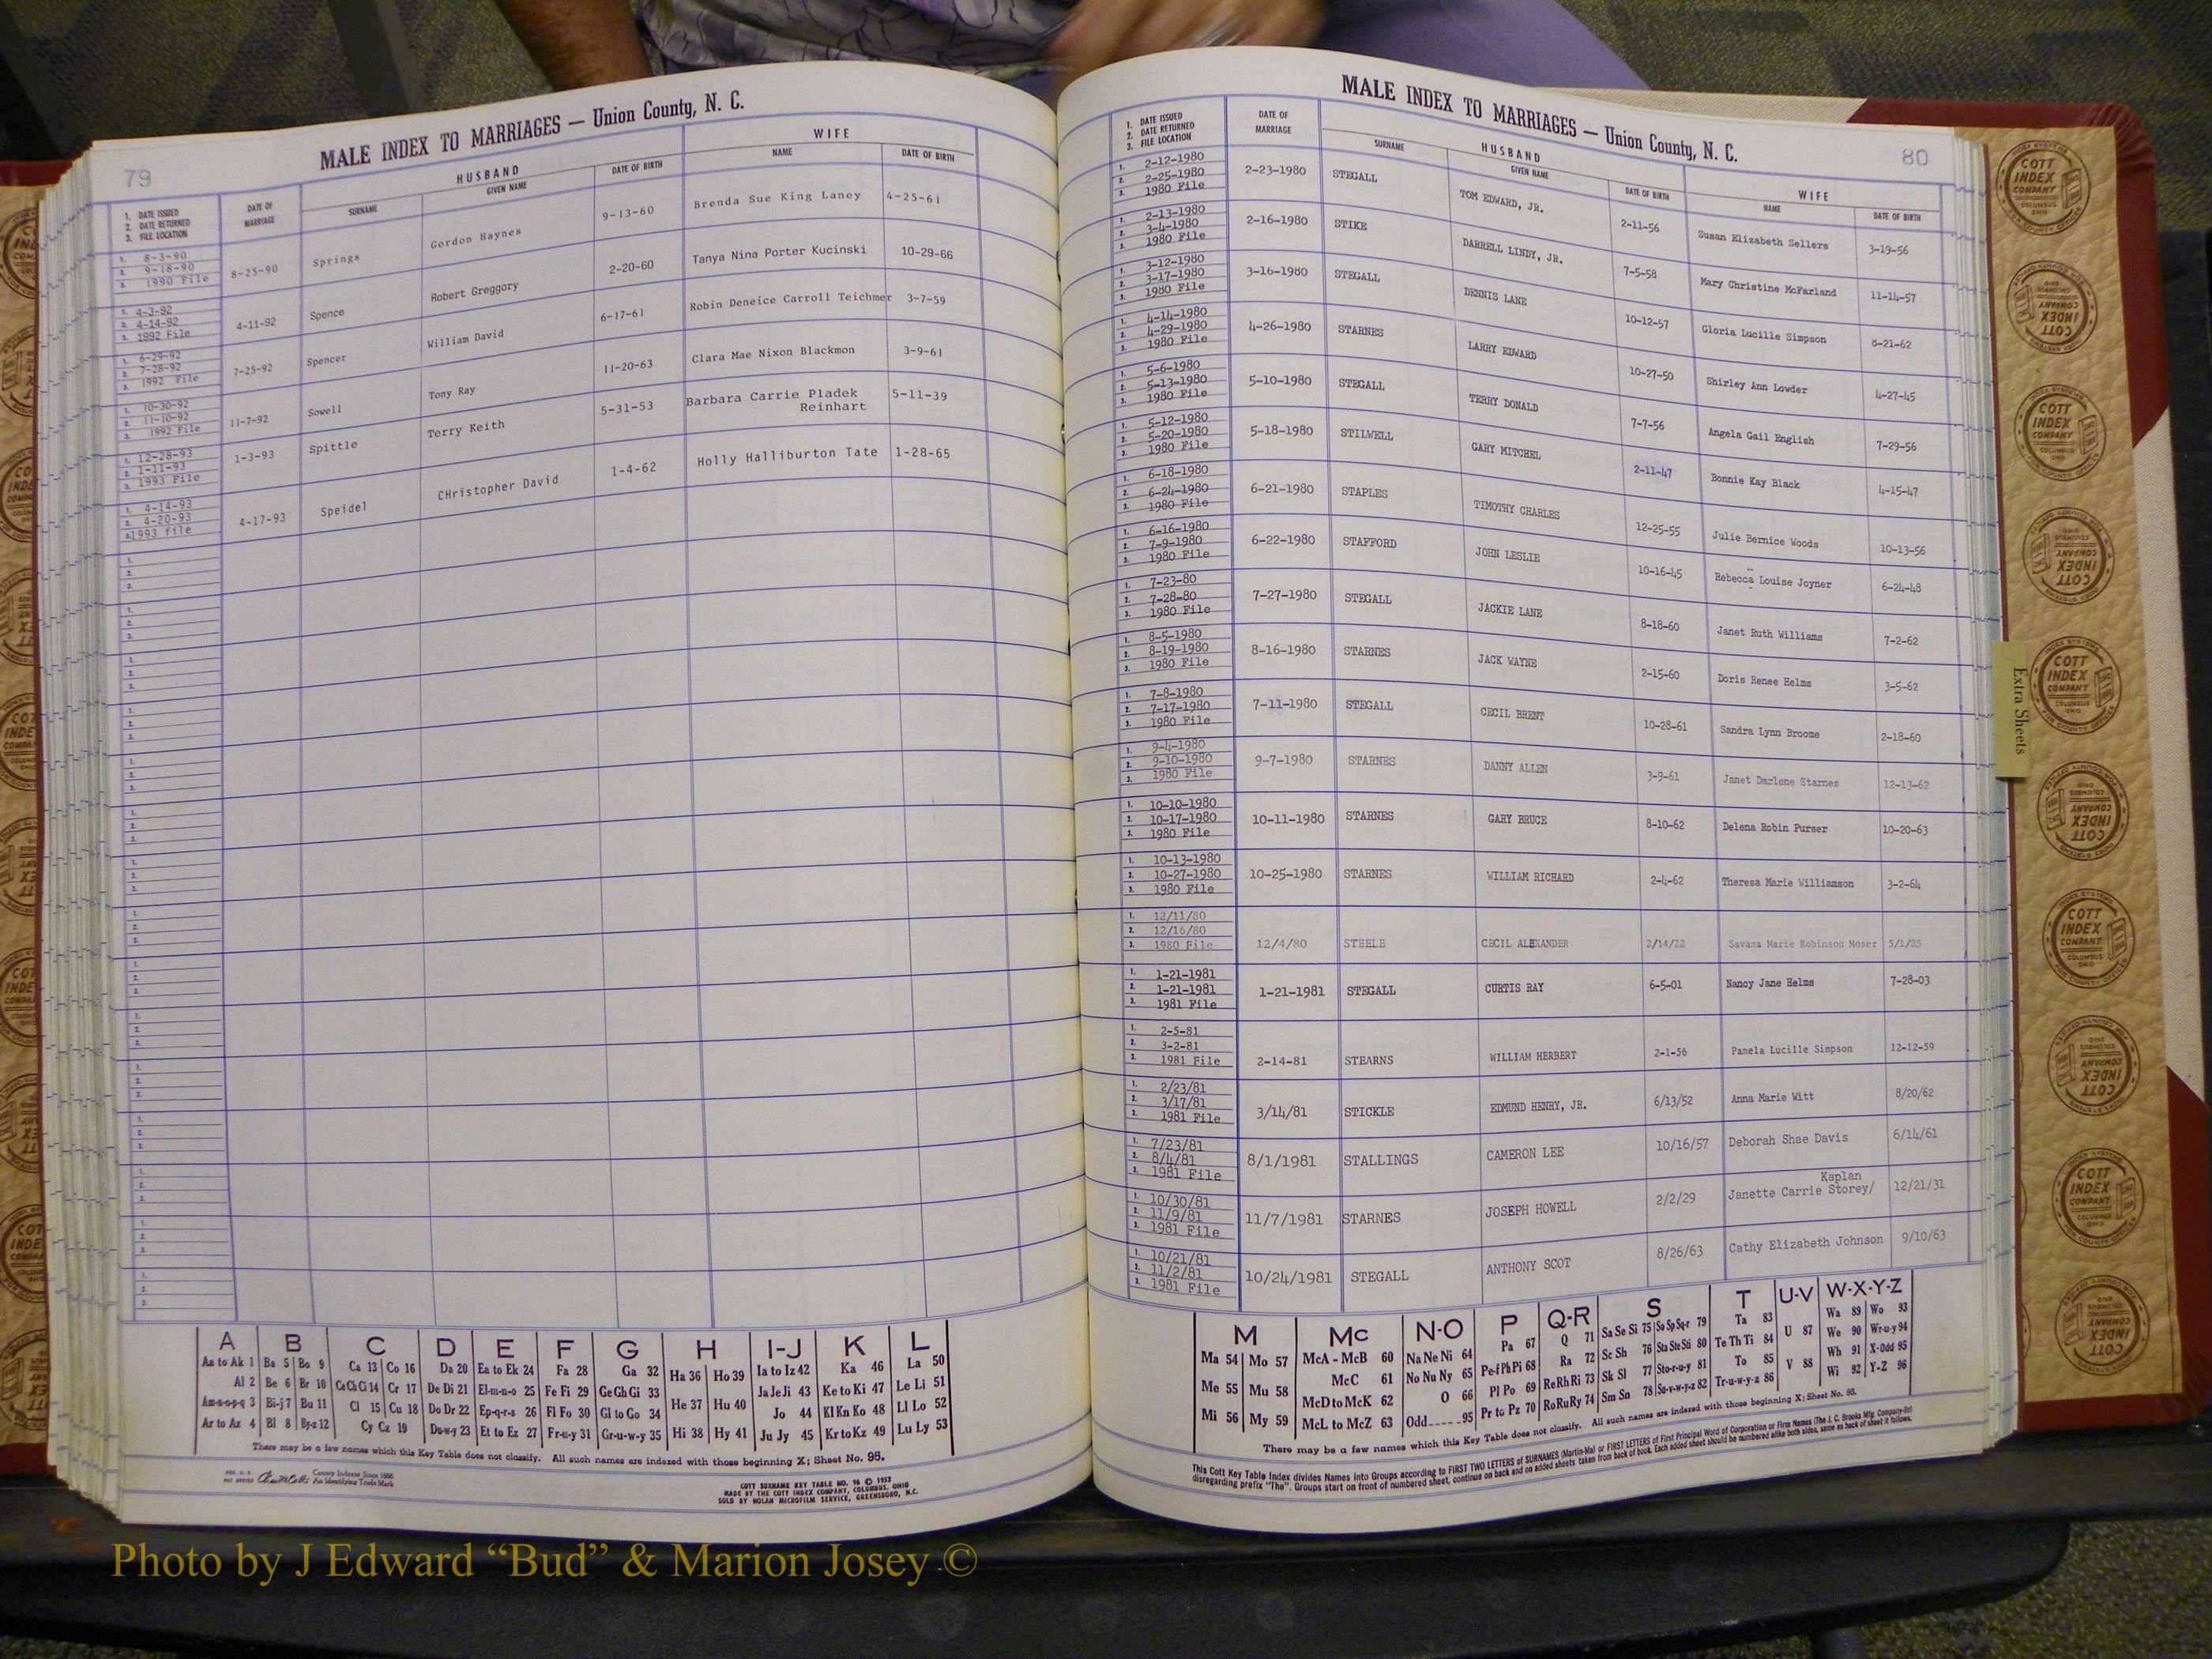 MALE INDEX TO MARRIAGES — Union County, N. C.
79
1. DATE ISSUED
2. DATE RETURNED
3. FILE LOCATION
DATE OF MARRIAGE
HUSBAND
SURNAME
GIVEN NAME
DATE OF BIRTH
WIFE
NAME
DATE OF BIRTH
1. 8-3-90
2. 9-18-90
3. 1990 File
8-25-90 Springs Gordon Haynes 9-13-60 Brenda Sue King Laney 4-25-61
1. 4-3-92
2. 4-14-92
3. 1992 File
4-11-92 Spence Robert Greggory 2-20-60 Tanya Nina Porter Kucinski 10-29-66
1. 6-29-92
2. 7-28-92
3. 1992 File
7-25-92 Spencer William David 6-17-61 Robin Deneice Carroll Teichmer 3-7-59
1. 10-30-92
2. 11-10-92
3. 1992 File
11-7-92 Sowell Tony Ray 11-20-63 Clara Mae Nixon Blackmon 3-9-61
1. 12-28-93
2. 1-11-93
3. 1993 File
1-3-93 Spittle Terry Keith 5-31-53 Barbara Carrie Pladek 5-11-39
Reinhart
1. 4-14-93
2. 4-20-93
3. 1993 file
4-17-93 Speidel CHristopher David 1-4-62 Holly Halliburton Tate 1-28-65
A B C D E F G H I-J K L
Aa to Ak 1 Ba 5 Bo 9 Ca 13 Co 16 Da 20 Ea to Ek 24 Fa 28 Ga 32 Ha 36 Ho 39 Ia to Iz 42 Ka 46 La 50
Al 2 Be 6 Br 10 Ce Ch Ci 14 Cr 17 De Di 21 El-m-n-o 25 Fe Fi 29 Ge Gh Gi 33 He 37 Hu 40 Ja Je Ji 43 Ke to Ki 47 Le Li 51
Am-n-o-p-q 3 Bi-j 7 Bu 11 Cl 15 Cu 18 Do Dr 22 Ep-q-r-s 26 Fl Fo 30 Gl to Go 34 Hi 38 Hy 41 Jo 44 Kl Kn Ko 48 Ll Lo 52
Ar to Az 4 Bl 8 By-z 12 Cy Cz 19 Du-w-y 23 Et to Ez 27 Fr-u-y 31 Gr-u-w-y 35 Ju Jy 45 Kr to Kz 49 Lu Ly 53
There may be a few names which this Key Table does not classify. All such names are indexed with those beginning X; Sheet No. 95.
County Indexes Since 1888
An Identifying Trade Mark
COTT SURNAME KEY TABLE NO. 96 © 1952
MADE BY THE COTT INDEX COMPANY, COLUMBUS, OHIO
SOLD BY NOLAN MICROFILM SERVICE, GREENSBORO, N.C.
MALE INDEX TO MARRIAGES — Union County, N. C.
80
1. DATE ISSUED
2. DATE RETURNED
3. FILE LOCATION
DATE OF MARRIAGE
HUSBAND
SURNAME
GIVEN NAME
DATE OF BIRTH
WIFE
NAME
DATE OF BIRTH
1. 2-12-1980
2. 2-25-1980
3. 1980 File
2-23-1980 STEGALL TOM EDWARD, JR. 2-11-56 Susan Elizabeth Sellers 3-19-56
1. 2-13-1980
2. 3-4-1980
3. 1980 File
2-16-1980 STIKE DARRELL LINDY, JR. 7-5-58 Mary Christine McFarland 11-14-57
1. 3-12-1980
2. 3-17-1980
3. 1980 File
3-16-1980 STEGALL DENNIS LANE 10-12-57 Gloria Lucille Simpson 8-21-62
1. 4-14-1980
2. 4-29-1980
3. 1980 File
4-26-1980 STARNES LARRY EDWARD 10-27-50 Shirley Ann Lowder 4-27-45
1. 5-6-1980
2. 5-13-1980
3. 1980 File
5-10-1980 STEGALL TERRY DONALD 7-7-56 Angela Gail English 7-29-56
1. 5-12-1980
2. 5-20-1980
3. 1980 File
5-18-1980 STILWELL GARY MITCHEL 2-11-47 Bonnie Kay Black 4-15-47
1. 6-18-1980
2. 6-24-1980
3. 1980 File
6-21-1980 STAPLES TIMOTHY CHARLES 12-25-55 Julie Bernice Woods 10-13-56
1. 6-16-1980
2. 7-9-1980
3. 1980 File
6-22-1980 STAFFORD JOHN LESLIE 10-16-45 Rebecca Louise Joyner 6-24-48
1. 7-23-80
2. 7-28-80
3. 1980 File
7-27-1980 STEGALL JACKIE LANE 8-18-60 Janet Ruth Williams 7-2-62
1. 8-5-1980
2. 8-19-1980
3. 1980 File
8-16-1980 STARNES JACK WAYNE 2-15-60 Doris Renee Helms 3-5-62
1. 7-8-1980
2. 7-17-1980
3. 1980 File
7-11-1980 STEGALL CECIL BRENT 10-28-61 Sandra Lynn Broome 2-18-60
1. 9-4-1980
2. 9-10-1980
3. 1980 File
9-7-1980 STARNES DANNY ALLEN 3-9-61 Janet Darlene Starnes 12-13-62
1. 10-10-1980
2. 10-17-1980
3. 1980 File
10-11-1980 STARNES GARY BRUCE 8-10-62 Delena Robin Purser 10-20-63
1. 10-13-1980
2. 10-27-1980
3. 1980 File
10-25-1980 STARNES WILLIAM RICHARD 2-4-62 Theresa Marie Williamson 3-2-64
1. 12/11/80
2. 12/16/80
3. 1980 File
12/4/80 STEELE CECIL ALEXANDER 2/14/22 Savana Marie Robinson Moser 5/1/25
1. 1-21-1981
2. 1-21-1981
3. 1981 File
1-21-1981 STEGALL CURTIS RAY 6-5-01 Nancy Jane Helms 7-28-03
1. 2-5-81
2. 3-2-81
3. 1981 File
2-14-81 STEARNS WILLIAM HERBERT 2-1-56 Pamela Lucille Simpson 12-12-59
1. 2/23/81
2. 3/17/81
3. 1981 File
3/14/81 STICKLE EDMUND HENRY, JR. 6/13/52 Anna Marie Witt 8/20/62
1. 7/23/81
2. 8/4/81
3. 1981 File
8/1/1981 STALLINGS CAMERON LEE 10/16/57 Deborah Shae Davis 6/14/61
1. 10/30/81
2. 11/9/81
3. 1981 File
Kaplan
11/7/1981 STARNES JOSEPH HOWELL 2/2/29 Janette Carrie Storey/ 12/21/31
1. 10/21/81
2. 11/2/81
3. 1981 File
10/24/1981 STEGALL ANTHONY SCOT 8/26/63 Cathy Elizabeth Johnson 9/10/63
M Mc N-O P Q-R S T U-V W-X-Y-Z
Ma 54 Mo 57 McA - McB 60 Na Ne Ni 64 Pa 67 Q 71 Sa Se Si 75 So Sp Sq-r 79 Ta 83 U 87 Wa 89 Wo 93
Me 55 Mu 58 McC 61 No Nu Ny 65 Pe-f Ph Pi 68 Ra 72 Sc Sh 76 Sta Ste Sti 80 Te Th Ti 84 V 88 We 90 Wr-u-y 94
Mi 56 My 59 McD to McK 62 O 66 Pl Po 69 Re Rh Ri 73 Sk Sl 77 Sto-r-u-y 81 To 85 Wh 91 X-Odd 95
McL to McZ 63 Odd 95 Pr to Pz 70 Ro Ru Ry 74 Sm Sn 78 Su-v-w-y-z 82 Tr-u-w-y-z 86 Wi 92 Y-Z 96
There may be a few names which this Key Table does not classify. All such names are indexed with those beginning X; Sheet No. 95.
This Cott Key Table Index divides Names into Groups according to FIRST TWO LETTERS of SURNAMES (Martin-Ma) or FIRST LETTERS of First Principal Word of Corporation or Firm Names (The J. C. Brooks Mfg. Company-Br)
disregarding prefix "The". Groups start on front of numbered sheet, continue on back and on added sheets taken from back of book. Each added sheet should be numbered alike both sides, same as back of sheet it follows.
Extra Sheets
COTT INDEX COMPANY COLUMBUS OHIO
Photo by J Edward “Bud” & Marion Josey ©